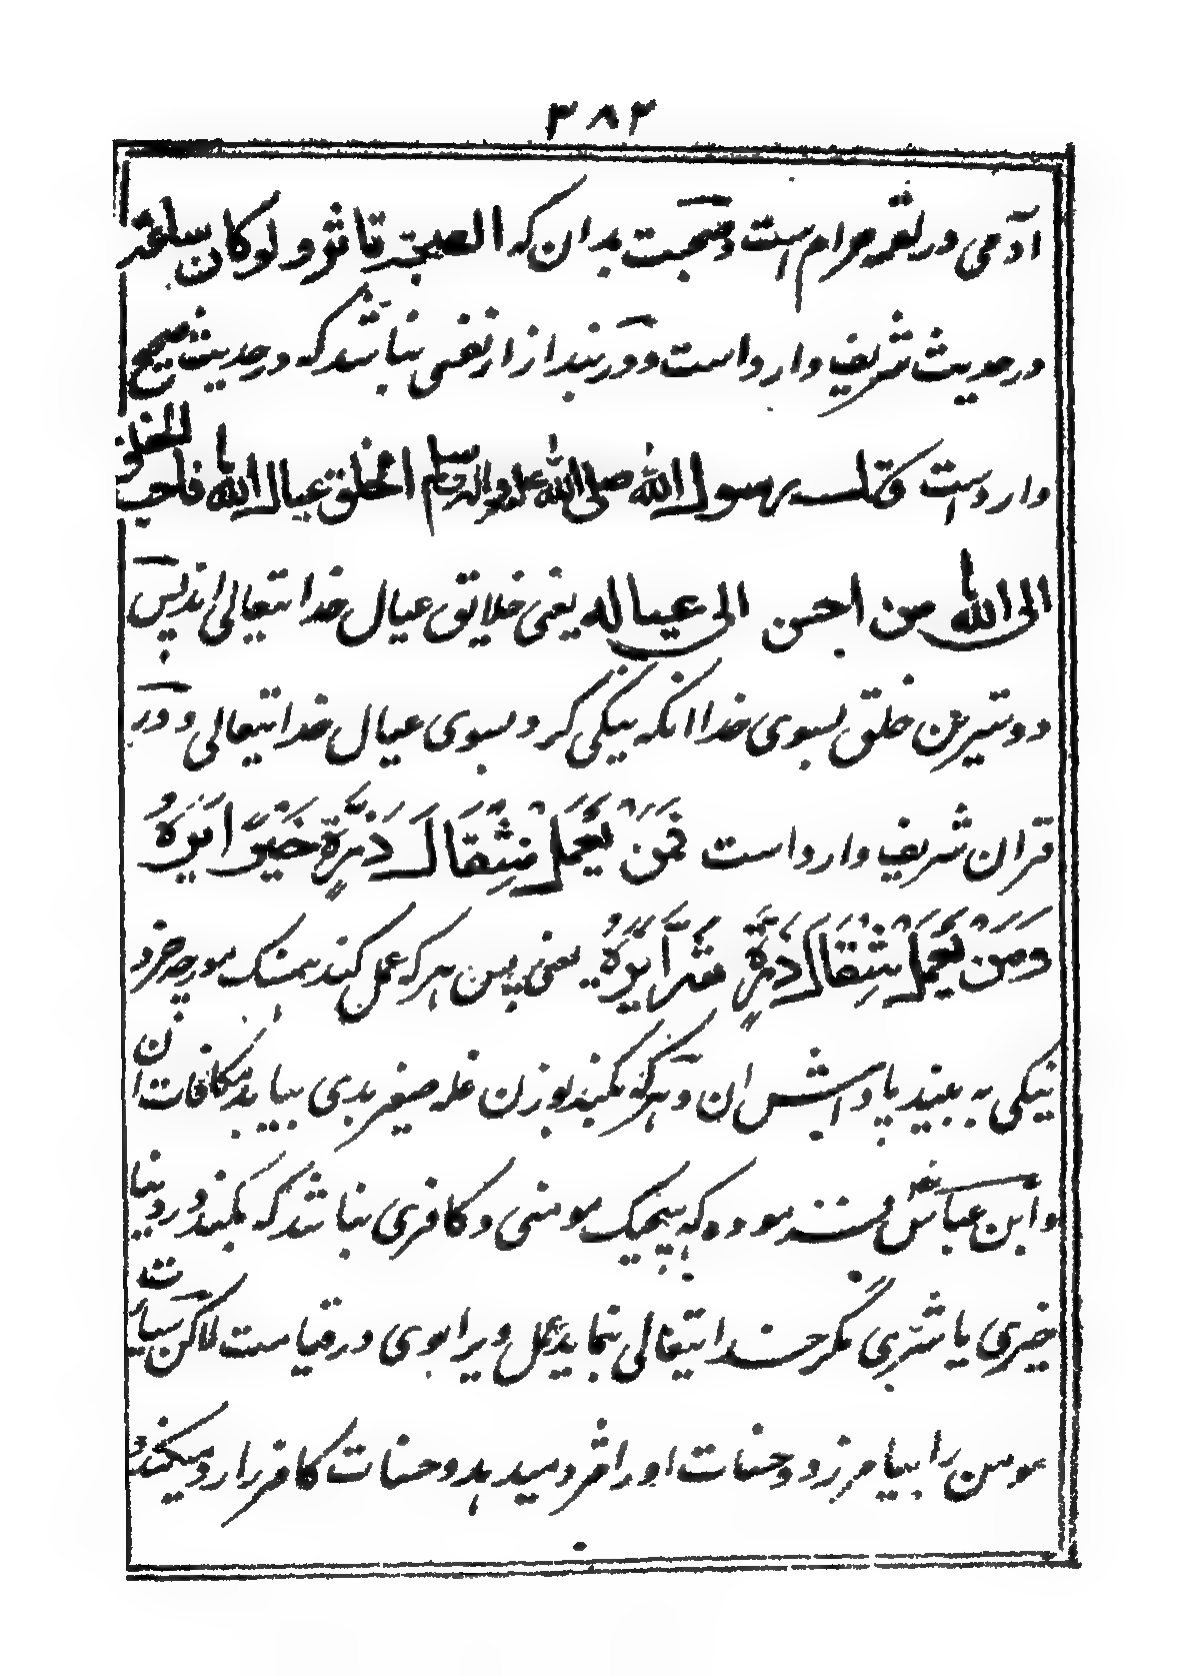 ۳۸۲
آدمی در لقمه حرام است و صحبت بدان که الصحبة تاثر و لو کان ساعة
در حدیث شریف وارد است و در بند ازار نفسی بناشد که در حدیث صحیح
وارد است قال رسول الله صلی الله علیه واله وسلم الخلق عیال الله فاحب الخلق
الی الله من احسن الی عیاله یعنی خلایق عیال خدا تعالی اند پس
دوستیرین خلق بسوی خدا انکه نیکی کرد بسوی عیال خدا تعالی و در
قران شریف وارد است فَمَنْ يَعْمَلْ مِثْقَالَ ذَرَّةٍ خَيْرًا يَرَهُ
وَمَنْ يَعْمَلْ مِثْقَالَ ذَرَّةٍ شَرًّا يَرَهُ یعنی پس هر که عمل کند همسنک مورچه خرد
نیکی به بیند پاداش ان و هر که بکند بوزن نمله صغیر بدی بیابد مکافات ان
و ابن عباس رض فرموده که هیچیک مومنی و کافری نباشد که بکند در دنیا
خیری یا شری مگر خدا تعالی بنماید عمل ویرا بوی در قیامت لاکن سیات
مومن را بیامرزد و حسنات او را مزد میدهد و حسنات کافر را رد میکند و